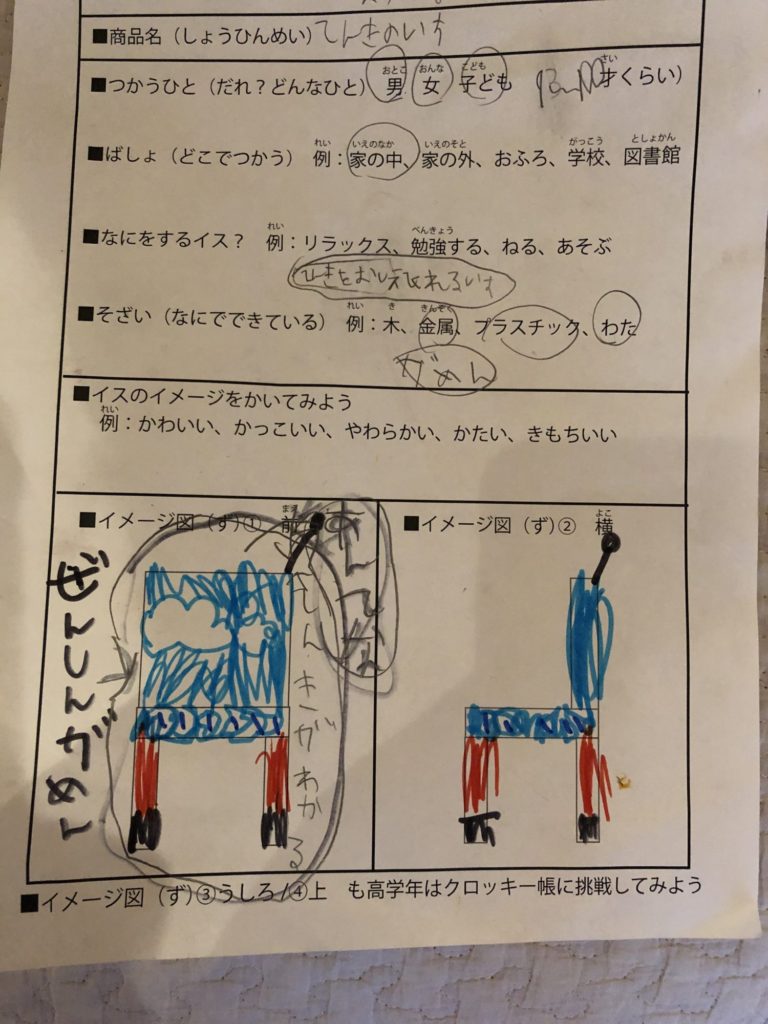 ■商品名（しょうひんめい）てんきのいす
■つかうひと（だれ？どんなひと）男 女 子ども 才くらい）
■ばしょ（どこでつかう） 例：家の中、家の外、おふろ、学校、図書館
■なにをするイス？ 例：リラックス、勉強する、ねる、あそぶ
■そざい（なにでできている） 例：木、金属、プラスチック、わた
がめん
■イスのイメージをかいてみよう
例：かわいい、かっこいい、やわらかい、かたい、きもちいい
■イメージ図（ず）① 前
あんてな
てんきがわかる
ぜんしんがめん
■イメージ図（ず）② 横
■イメージ図（ず）③うしろ/④上 も高学年はクロッキー帳に挑戦してみよう